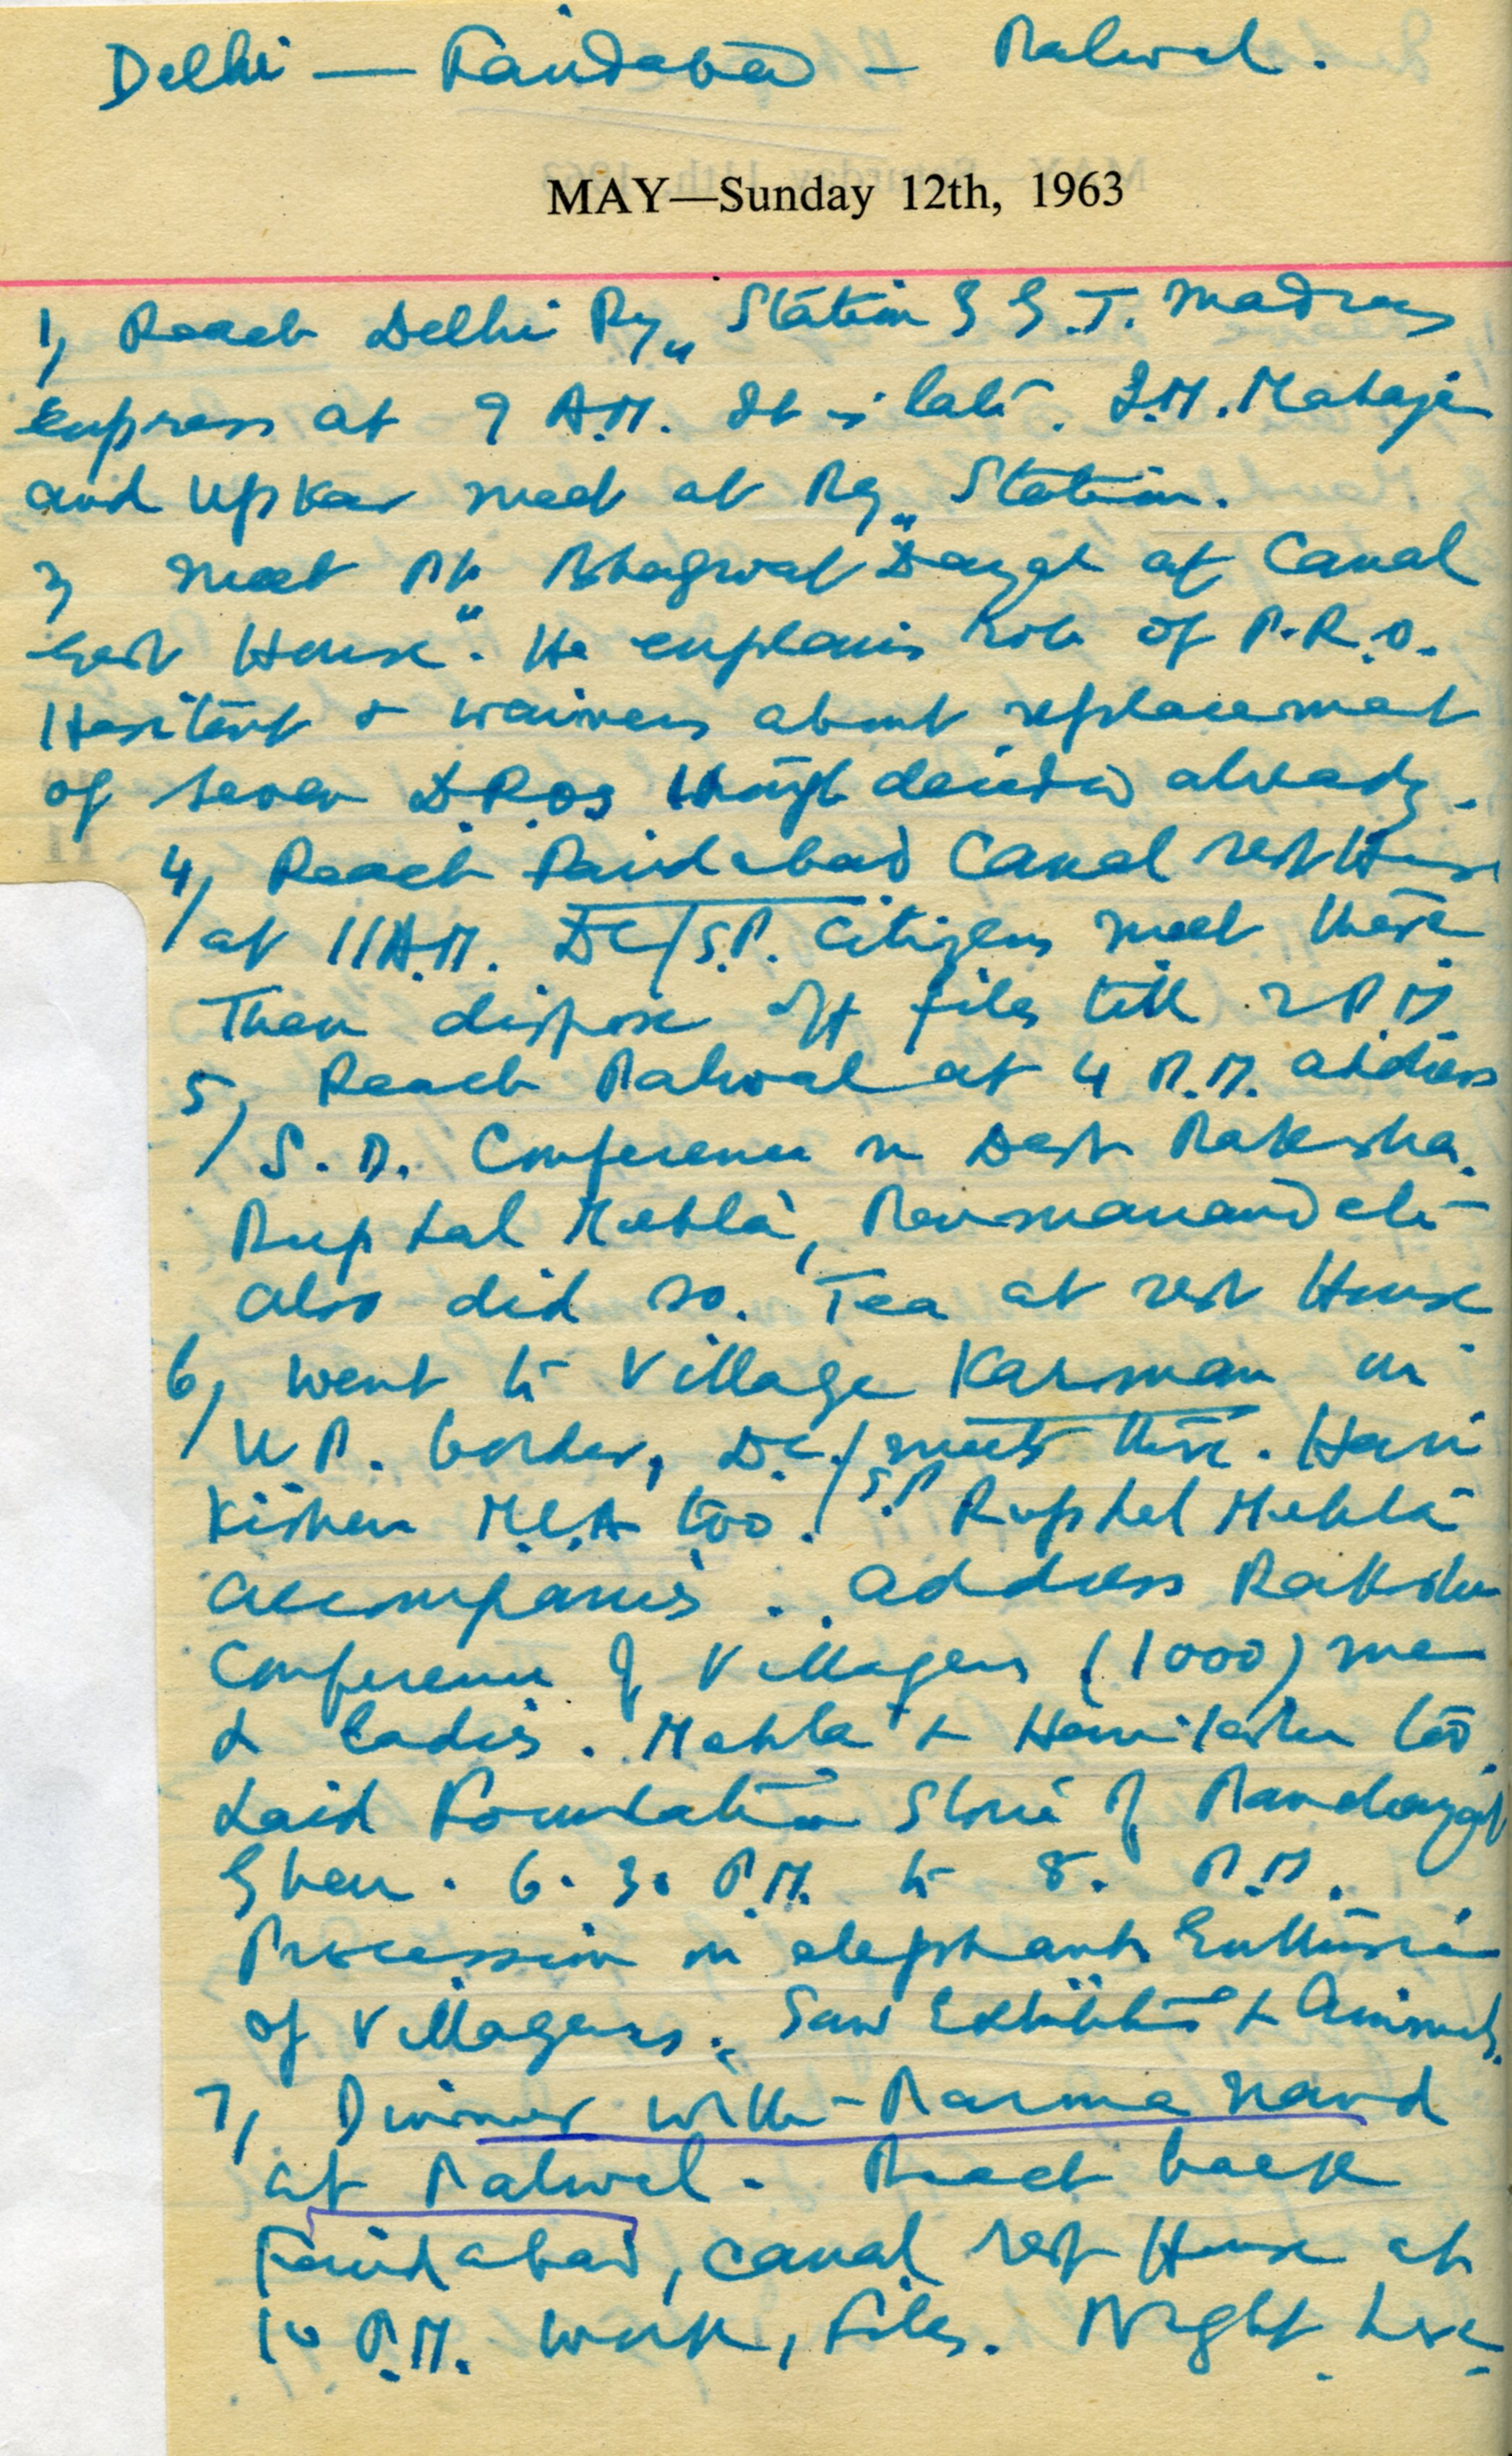 Delhi — Faridabad — Palwal.
MAY—Sunday 12th, 1963
1, Reach Delhi Ry„ Station G.T. Madras
Express at 9 A.M. It is late. I.M. Mahajan
and Upkar meet at Ry„ Station.
3, meet Pt. Bhagwat Dayal at Canal
rest House". He explains role of P.R.O.
Hesitent & waivers about replacement
of seven D.P.Os though decided already.
4, Reach Faridabad Canal rest House
at 11 A.M. DC/S.P. Citizens meet there
Then dispose off files till 2 P.M.
5, Reach Palwal at 4 P.M. address
S.D. Conference on Desh Raksha.
Rup Lal Mehta, Parmanand etc
also did so. Tea at rest House
6, went to Village Karman on
U.P. border, D.C./S.P. meets there. Hari
Kishen M.L.A too. Rup Lal Mehta
accompanies. address Raksha
Conference of Villagers (1000) men
& ladies. Mehta & Harikishen too.
Laid Foundation Stone of Panchayat
Ghar. 6.30 P.M. to 8. P.M.
Procession on elephants Enthusiasm
of Villagers. Saw Exhibition & Animals.
7, Dinner with Parma Nand
at Palwal. Reach back
Faridabad, canal rest House at
10 P.M. work, files. Night here